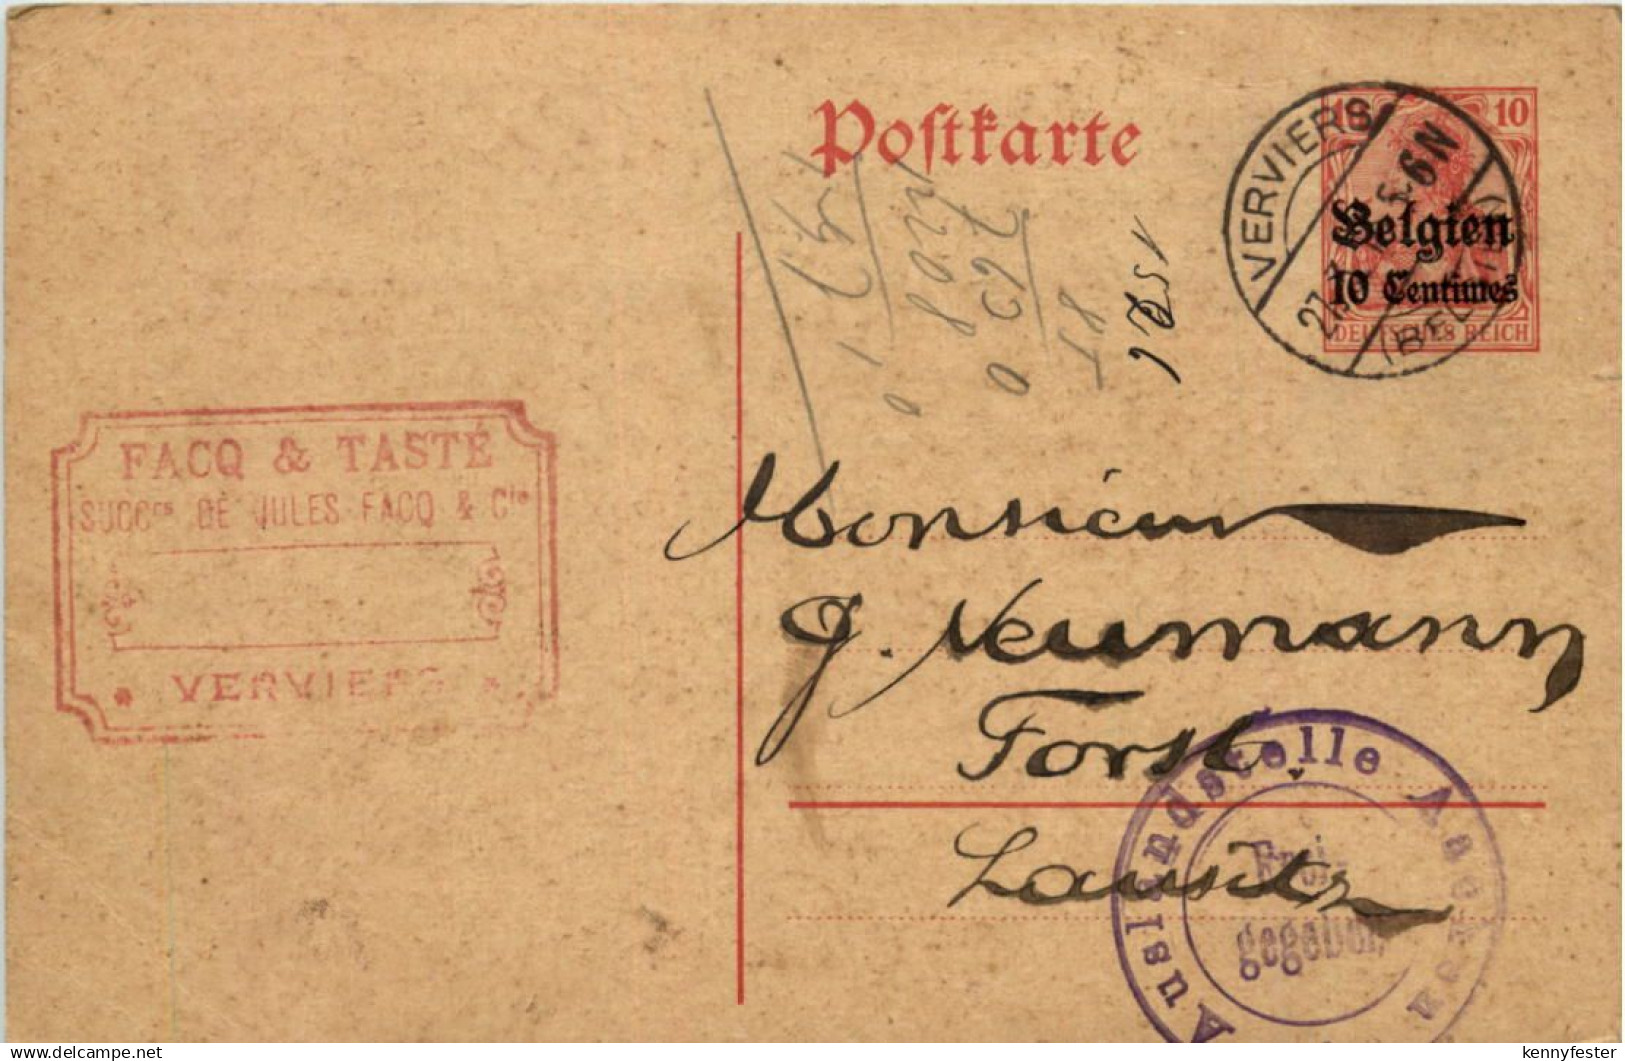 Postkarte
10
Belgien
10 Centimes
DEUTSCHES REICH
VERVIERS
6N
FACQ & TASTÉ
SUCCrs DE JULES FACQ & Cie
VERVIERS
Monsieur
J. Neumann
Forst
Lausitz
Auslandstelle Aachen
Frei-
gegeben
www.delcampe.net
kennyfester